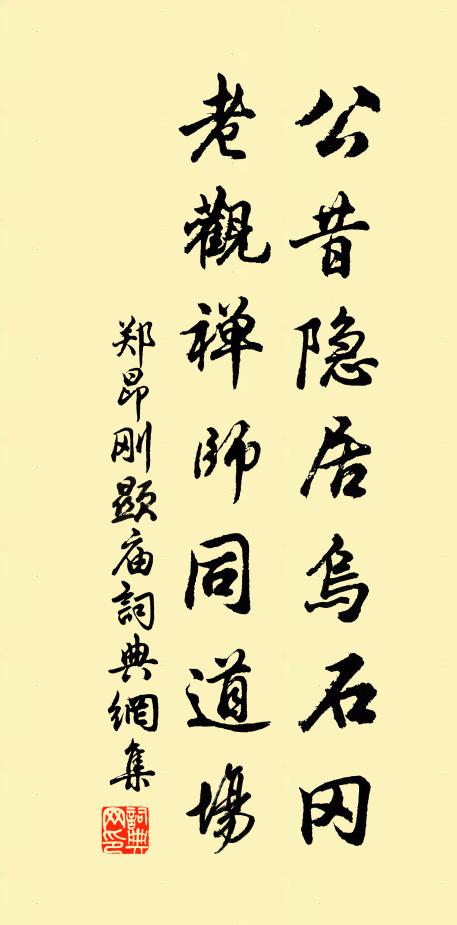 公昔隐居乌石冈
老觀禅師同道場
郑昂刚顯庙詞典網集
詞典網印